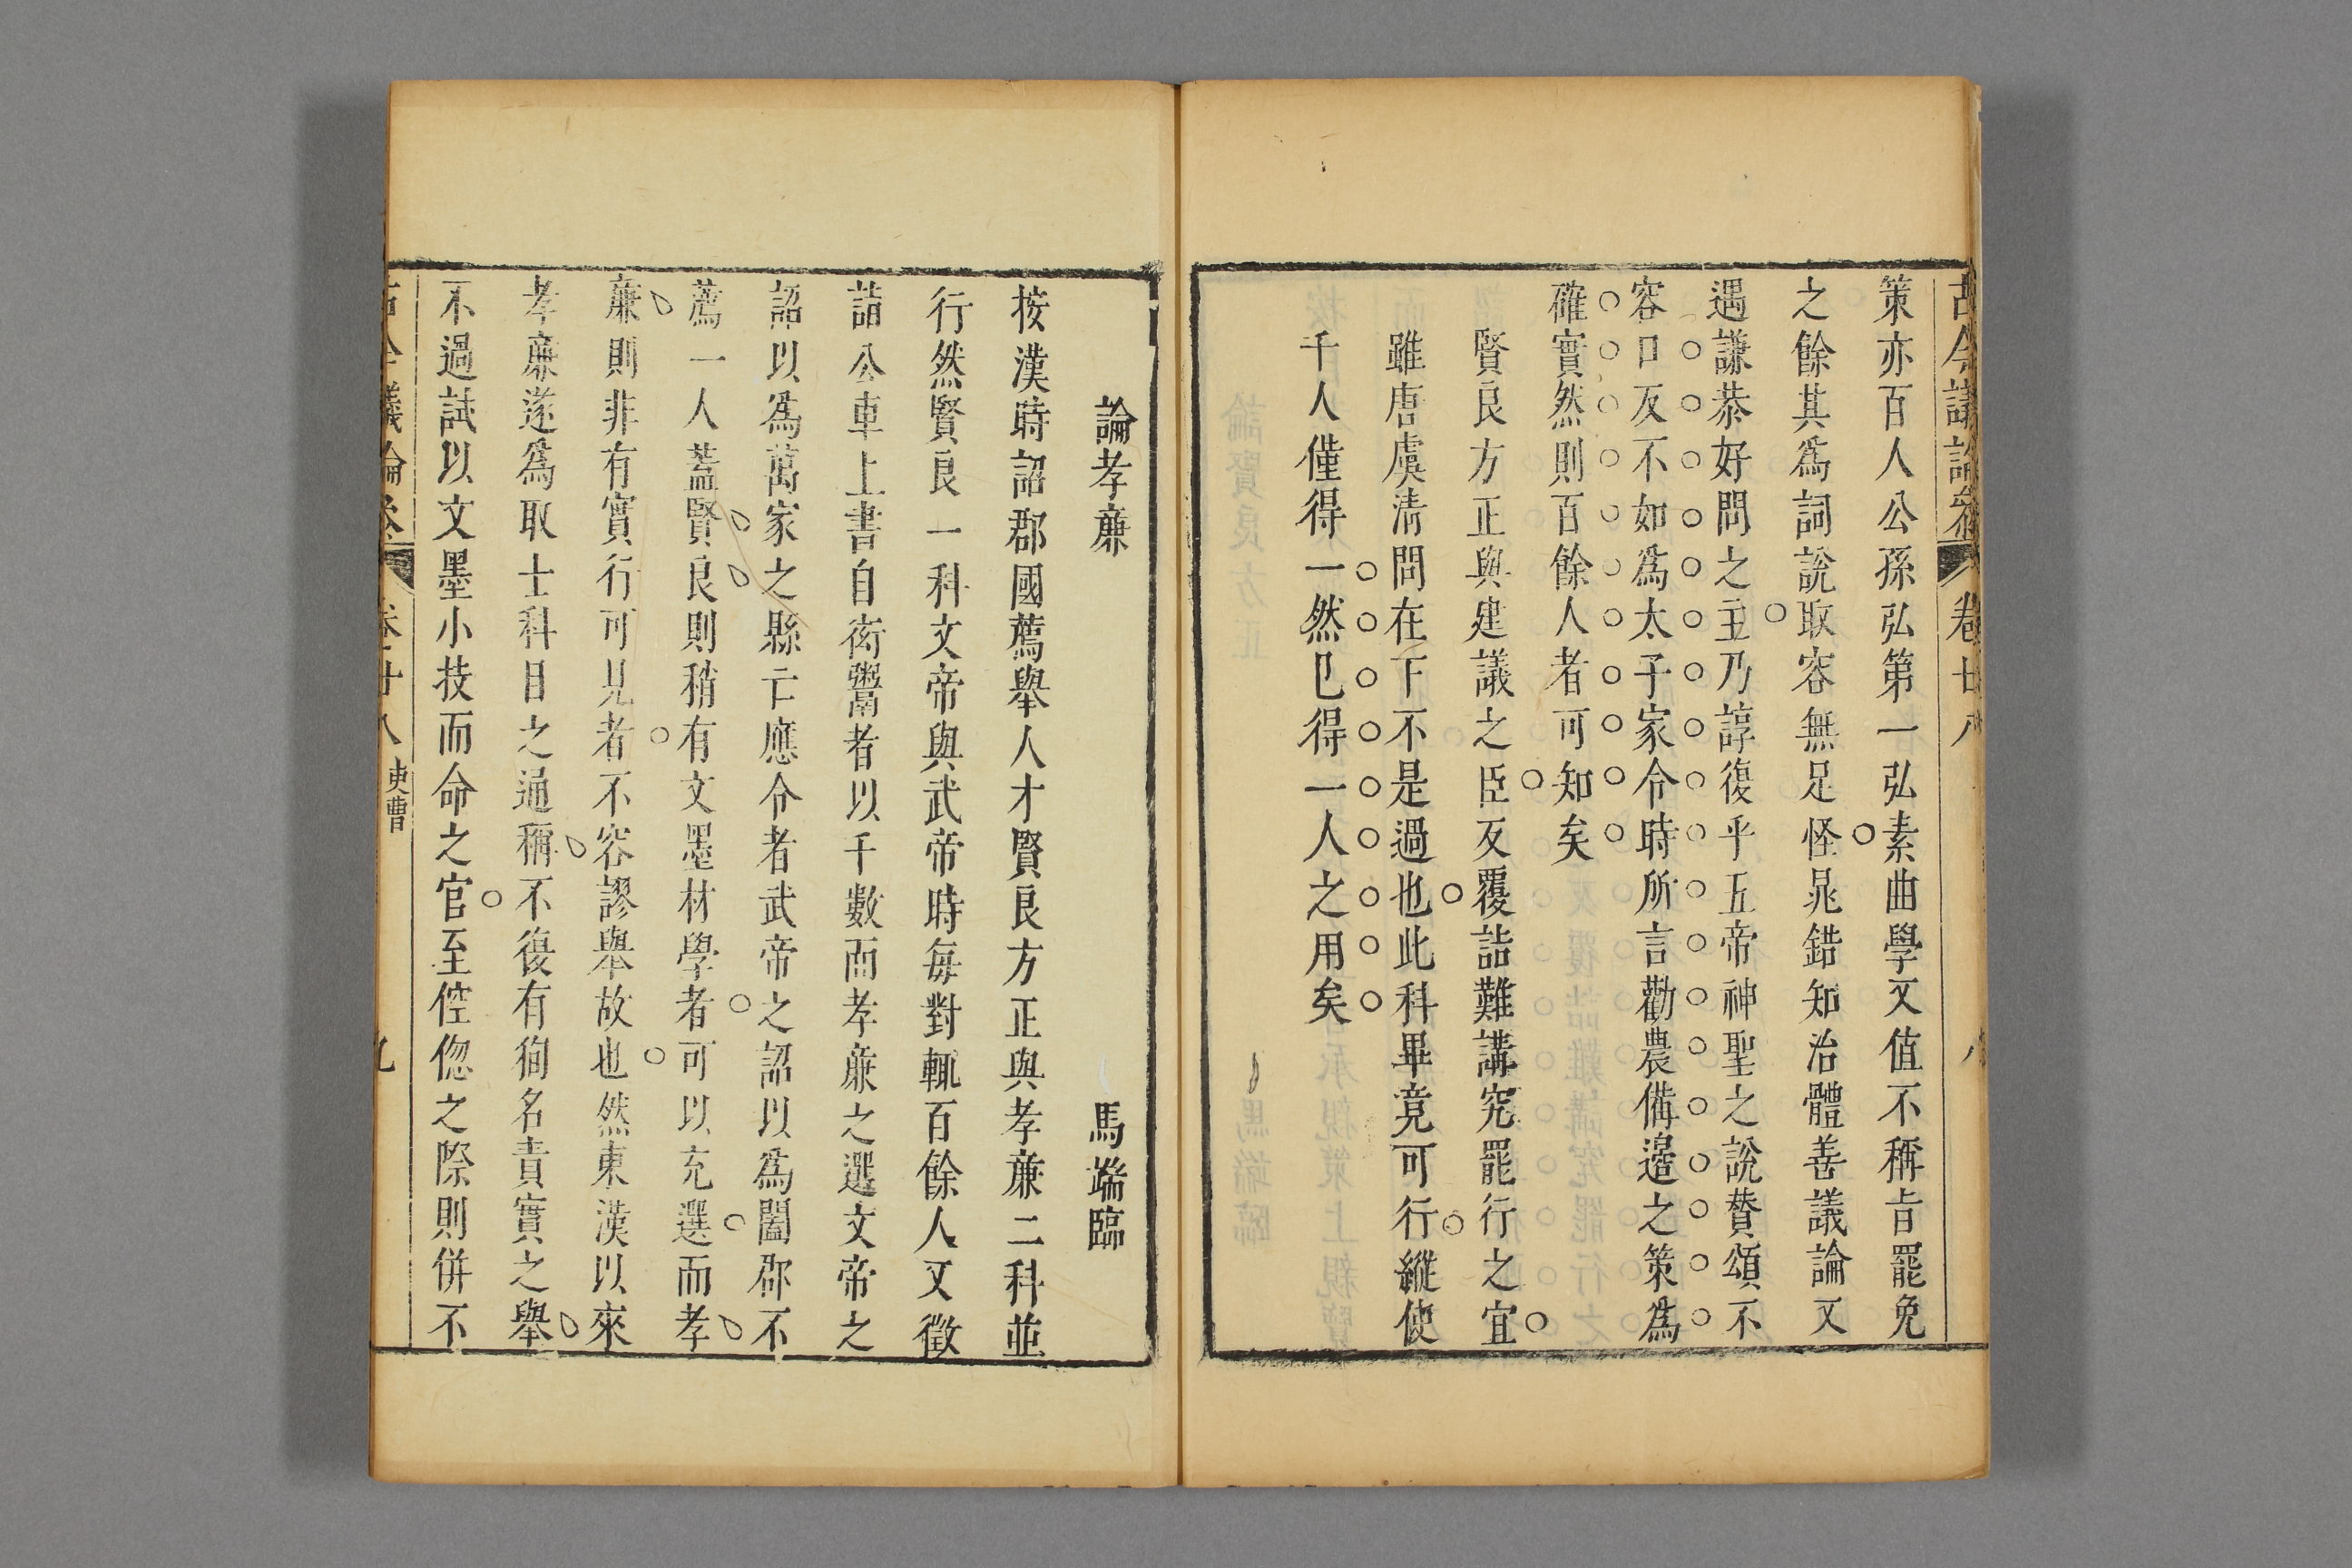 古今議論參 卷廿八 八
策亦百人公孫弘第一弘素曲學又值不稱旨罷免
之餘其爲詞說取容無足怪晁錯知治體善議論又
遇謙恭好問之主乃諄復乎五帝神聖之說贊頌不
容口反不如爲太子家令時所言勸農備邊之策爲
確實然則百餘人者可知矣
賢良方正與建議之臣反覆詰難講究罷行之宜
雖唐虞淸問在下不是過也此科畢竟可行縱使
千人僅得一然已得一人之用矣
論孝廉 馬端臨
按漢時詔郡國薦舉人才賢良方正與孝廉二科並
行然賢良一科文帝與武帝時每對輒百餘人又徵
詣公車上書自衒鬻者以千數而孝廉之選文帝之
詔以爲萬家之縣亡應令者武帝之詔以爲闔郡不
薦一人蓋賢良則稍有文墨材學者可以充選而孝
廉則非有實行可見者不容謬舉故也然東漢以來
孝廉遂爲取士科目之通稱不復有徇名責實之舉
不過試以文墨小技而命之官至倥偬之際則併不
古今議論參 卷廿八 吏曹 九